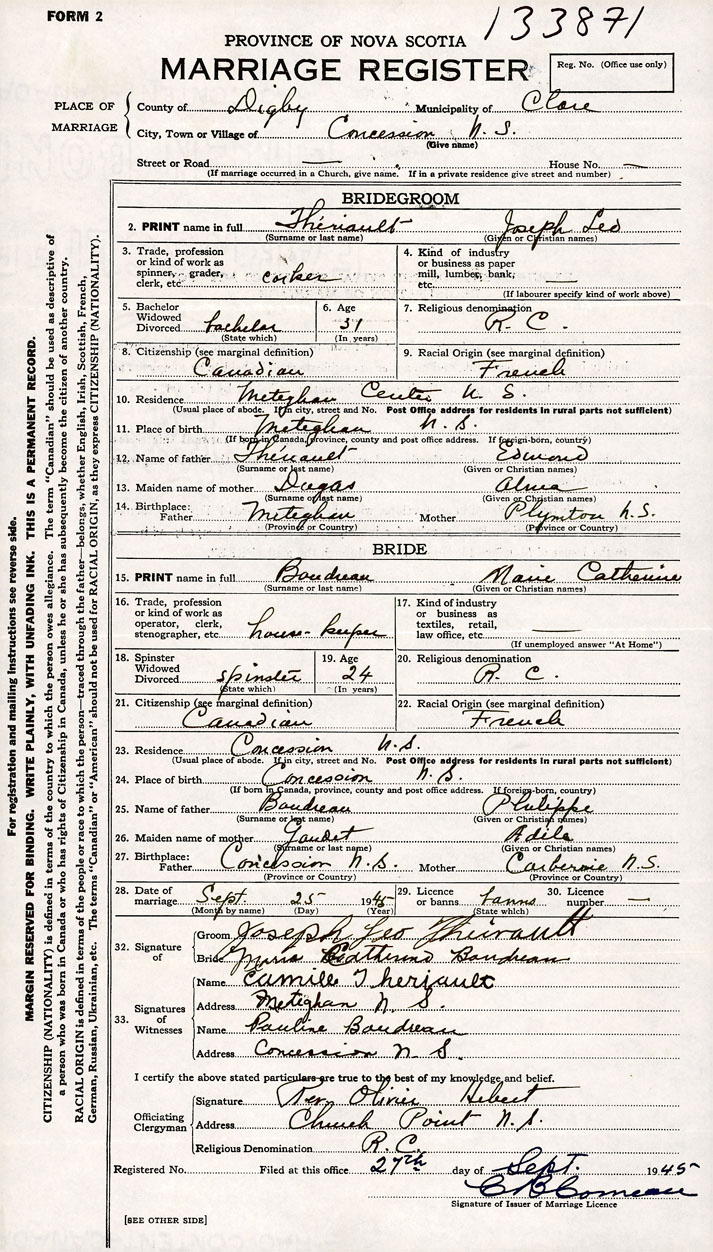 FORM 2
133871
PROVINCE OF NOVA SCOTIA
MARRIAGE REGISTER
Reg. No. (Office use only)
PLACE OF MARRIAGE
County of Digby Municipality of Clare
City, Town or Village of Concession N. S.
(Give name)
Street or Road — House No. —
(If marriage occurred in a Church, give name. If in a private residence give street and number)
BRIDEGROOM
2. PRINT name in full Thériault Joseph Leo
(Surname or last name) (Given or Christian names)
3. Trade, profession or kind of work as spinner, grader, clerk, etc. corker
4. Kind of industry or business as paper mill, lumber, bank, etc. —
(If labourer specify kind of work above)
5. Bachelor Widowed Divorced bachelor
(State which)
6. Age 31
(In years)
7. Religious denomination R. C.
8. Citizenship (see marginal definition) Canadian
9. Racial Origin (see marginal definition) French
10. Residence Meteghan Center N. S.
(Usual place of abode. If in city, street and No. Post Office address for residents in rural parts not sufficient)
11. Place of birth Meteghan N. S.
(If born in Canada, province, county and post office address. If foreign-born, country)
12. Name of father Thériault Edmond
(Surname or last name) (Given or Christian names)
13. Maiden name of mother Dugas Alma
(Surname or last name) (Given or Christian names)
14. Birthplace: Father Meteghan Mother Plymton N.S.
(Province or Country) (Province or Country)
BRIDE
15. PRINT name in full Boudreau Marie Catherine
(Surname or last name) (Given or Christian names)
16. Trade, profession or kind of work as operator, clerk, stenographer, etc. house-keeper
17. Kind of industry or business as textiles, retail, law office, etc. —
(If unemployed answer "At Home")
18. Spinster Widowed Divorced spinster
(State which)
19. Age 24
(In years)
20. Religious denomination R. C.
21. Citizenship (see marginal definition) Canadian
22. Racial Origin (see marginal definition) French
23. Residence Concession N.S.
(Usual place of abode. If in city, street and No. Post Office address for residents in rural parts not sufficient)
24. Place of birth Concession N. S.
(If born in Canada, province, county and post office address. If foreign-born, country)
25. Name of father Boudreau Philippe
(Surname or last name) (Given or Christian names)
26. Maiden name of mother Gaudet Adile
(Surname or last name) (Given or Christian names)
27. Birthplace: Father Concession N. S. Mother N.S.
(Province or Country) (Province or Country)
28. Date of marriage Sept. 25 1945
(Month by name) (Day) (Year)
29. Licence or banns banns
(State which)
30. Licence number —
32. Signature of
Groom Joseph Leo Thériault
Bride Marie Catherine Boudreau
33. Signatures of Witnesses
Name Camille Theriault
Address Meteghan N. S.
Name Pauline Boudreau
Address Concession N S.
I certify the above stated particulars are true to the best of my knowledge and belief.
Officiating Clergyman
Signature Rev. Olivier Hebert
Address Church Point N. S.
Religious Denomination R. C.
Registered No. Filed at this office 27th day of Sept. 1945
C B Comeau
Signature of Issuer of Marriage Licence
[SEE OTHER SIDE]
For registration and mailing instructions see reverse side.
MARGIN RESERVED FOR BINDING. WRITE PLAINLY, WITH UNFADING INK. THIS IS A PERMANENT RECORD.
CITIZENSHIP (NATIONALITY) is defined in terms of the country to which the person owes allegiance. The term "Canadian" should be used as descriptive of
a person who was born in Canada or who has rights of Citizenship in Canada, unless he or she has subsequently become the citizen of another country.
RACIAL ORIGIN is defined in terms of the people or race to which the person—traced through the father—belongs, whether English, Irish, Scottish, French,
German, Russian, Ukrainian, etc. The terms "Canadian" or "American" should not be used for RACIAL ORIGIN, as they express CITIZENSHIP (NATIONALITY).